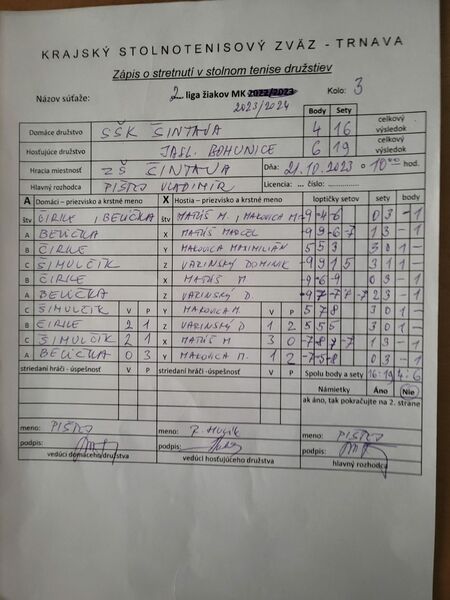 KRAJSKÝ STOLNOTENISOVÝ ZVÄZ - TRNAVA
Zápis o stretnutí v stolnom tenise družstiev
Názov súťaže: 2. liga žiakov MK 2022/2023 Kolo: 3
2023/2024
Body Sety
Domáce družstvo SŠK ŠINTAVA 4 16 celkový výsledok
Hosťujúce družstvo JASL. BOHUNICE 6 19 celkový výsledok
Hracia miestnosť ZŠ ŠINTAVA Dňa: 21.10.2023 o 10 00 hod.
Hlavný rozhodca PIŠTO VLADIMÍR Licencia: ... číslo:
A Domáci - priezvisko a krstné meno X Hostia - priezvisko a krstné meno loptičky setov sety body
štv ČIRKE, BELIČKA štv MATÚŠ M., MAKOVICA M. -9 -4 -6 0 3 -1
A BELIČKA X MATÚŠ MARCEL 1 3 -1
B ČIRKE Y MAKOVICA MAXIMILIÁN 5 5 3 3 0 1 -
C ŠIMULČÍK Z VAZINSKÝ DOMINIK 3 1 1 -
B ČIRKE X MATÚŠ M. -9 -6 -9 0 3 -1
A BELIČKA Z VAZINSKÝ D. 2 3 -1
C ŠIMULČÍK V P Y MAKOVICA M. V P 5 7 8 3 0 1 -
B ČIRKE 2 1 Z VAZINSKÝ D 1 2 5 5 5 3 0 1 -
C ŠIMULČÍK 2 1 X MATÚŠ M 3 0 -7 8 -7 -7 1 3 -1
A BELIČKA 0 3 Y MAKOVICA M. 1 2 -7 -5 -8 0 3 -1
striedaní hráči - úspešnosť V P striedaní hráči - úspešnosť V P Spolu body a sety 16-19 4:6
Námietky Áno Nie
ak áno, tak pokračujte na 2. strane
meno: PIŠTO meno: meno: PIŠTO
podpis: podpis: podpis:
vedúci domáceho družstva vedúci hosťujúceho družstva hlavný rozhodca